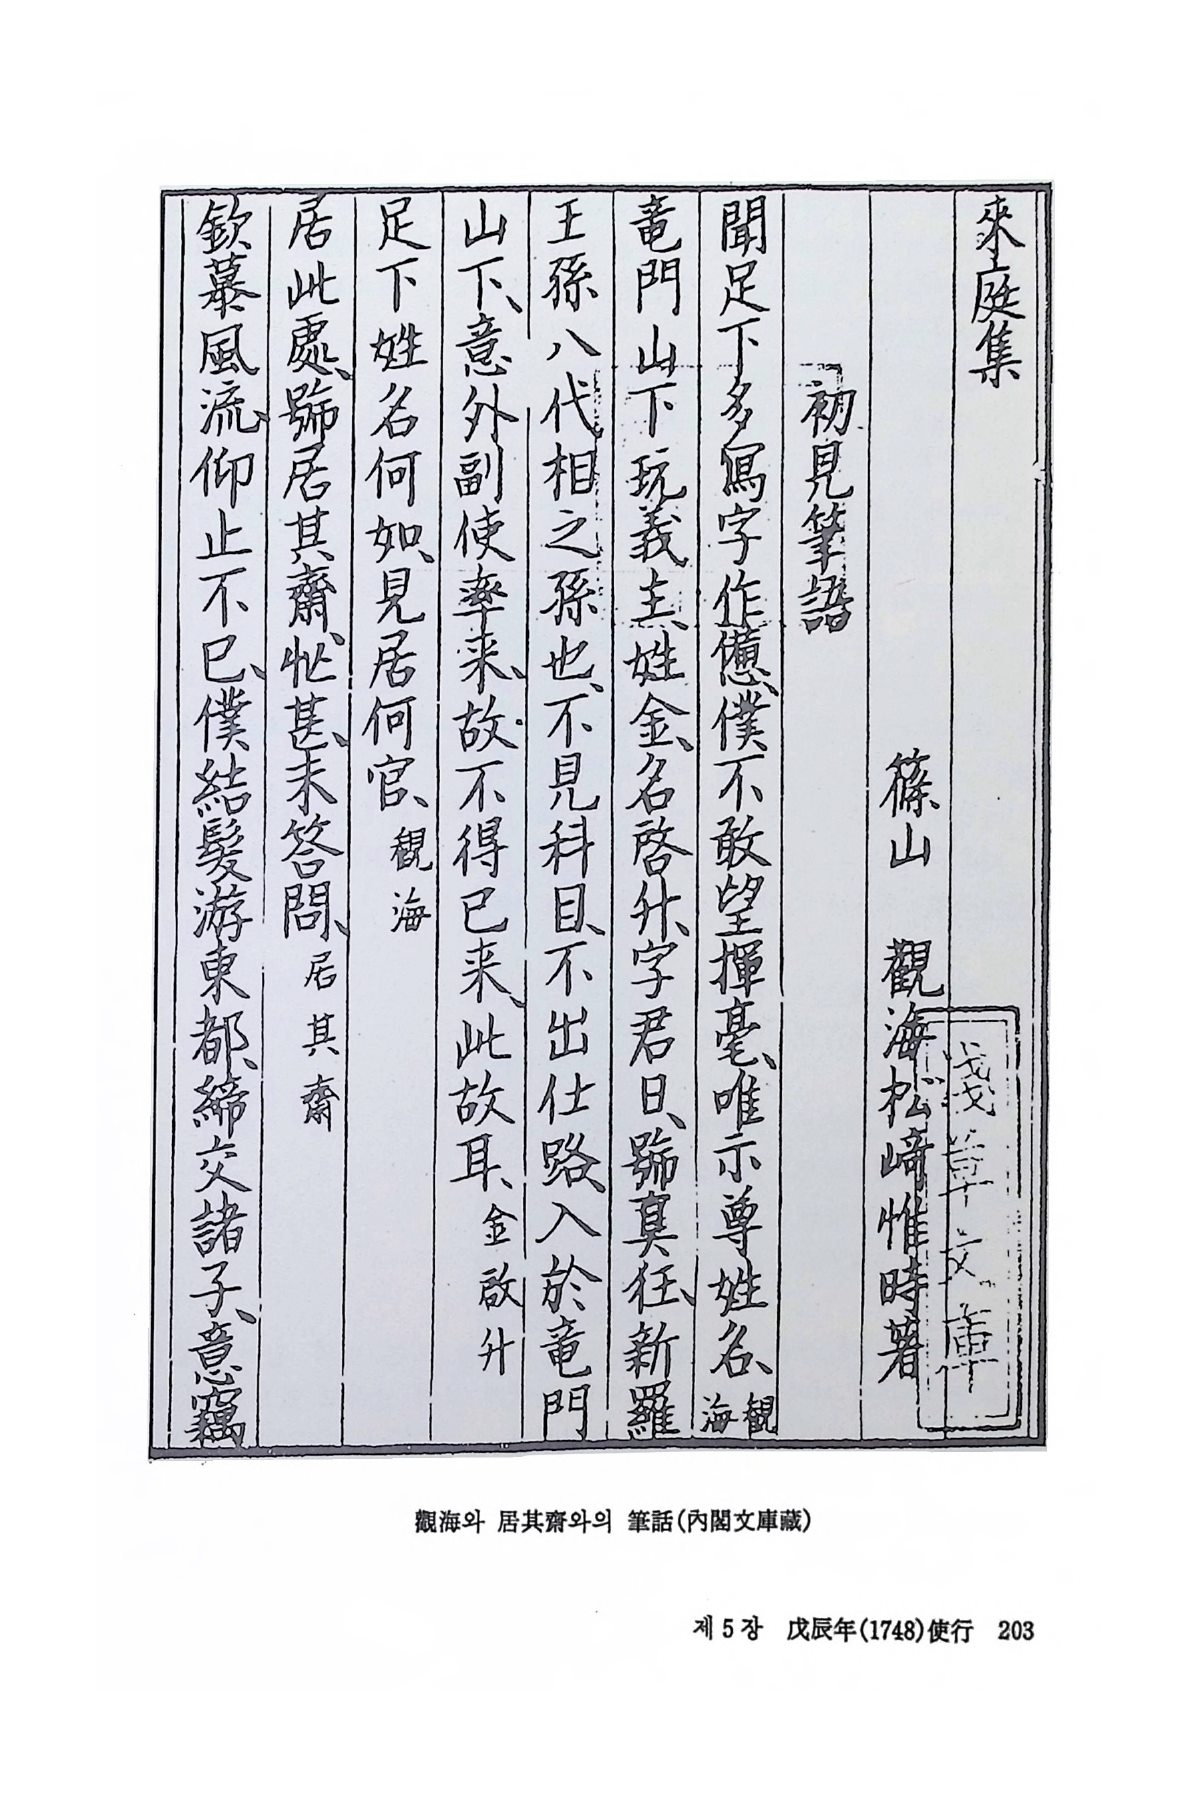 來庭集
篠山 觀海松﨑惟時著
初見筆語
聞足下多寫字作憊、僕不敢望揮毫、唯示尊姓名、觀海
竜門山下玩義主、姓金、名啓升、字君日、號真狂、新羅
王孫八代相之孫也、不見科目、不出仕路、入於竜門
山下、意外副使率来、故不得已来、此故耳、金啟升
足下姓名何如、見居何官、觀海
居此處、號居其齋、忙甚、未答問、居其齋
欽慕風流、仰止不已、僕結髮游東都、締交諸子、意竊
淺草文庫
觀海와 居其齋와의 筆話(內閣文庫藏)
제5장 戊辰年(1748)使行 203